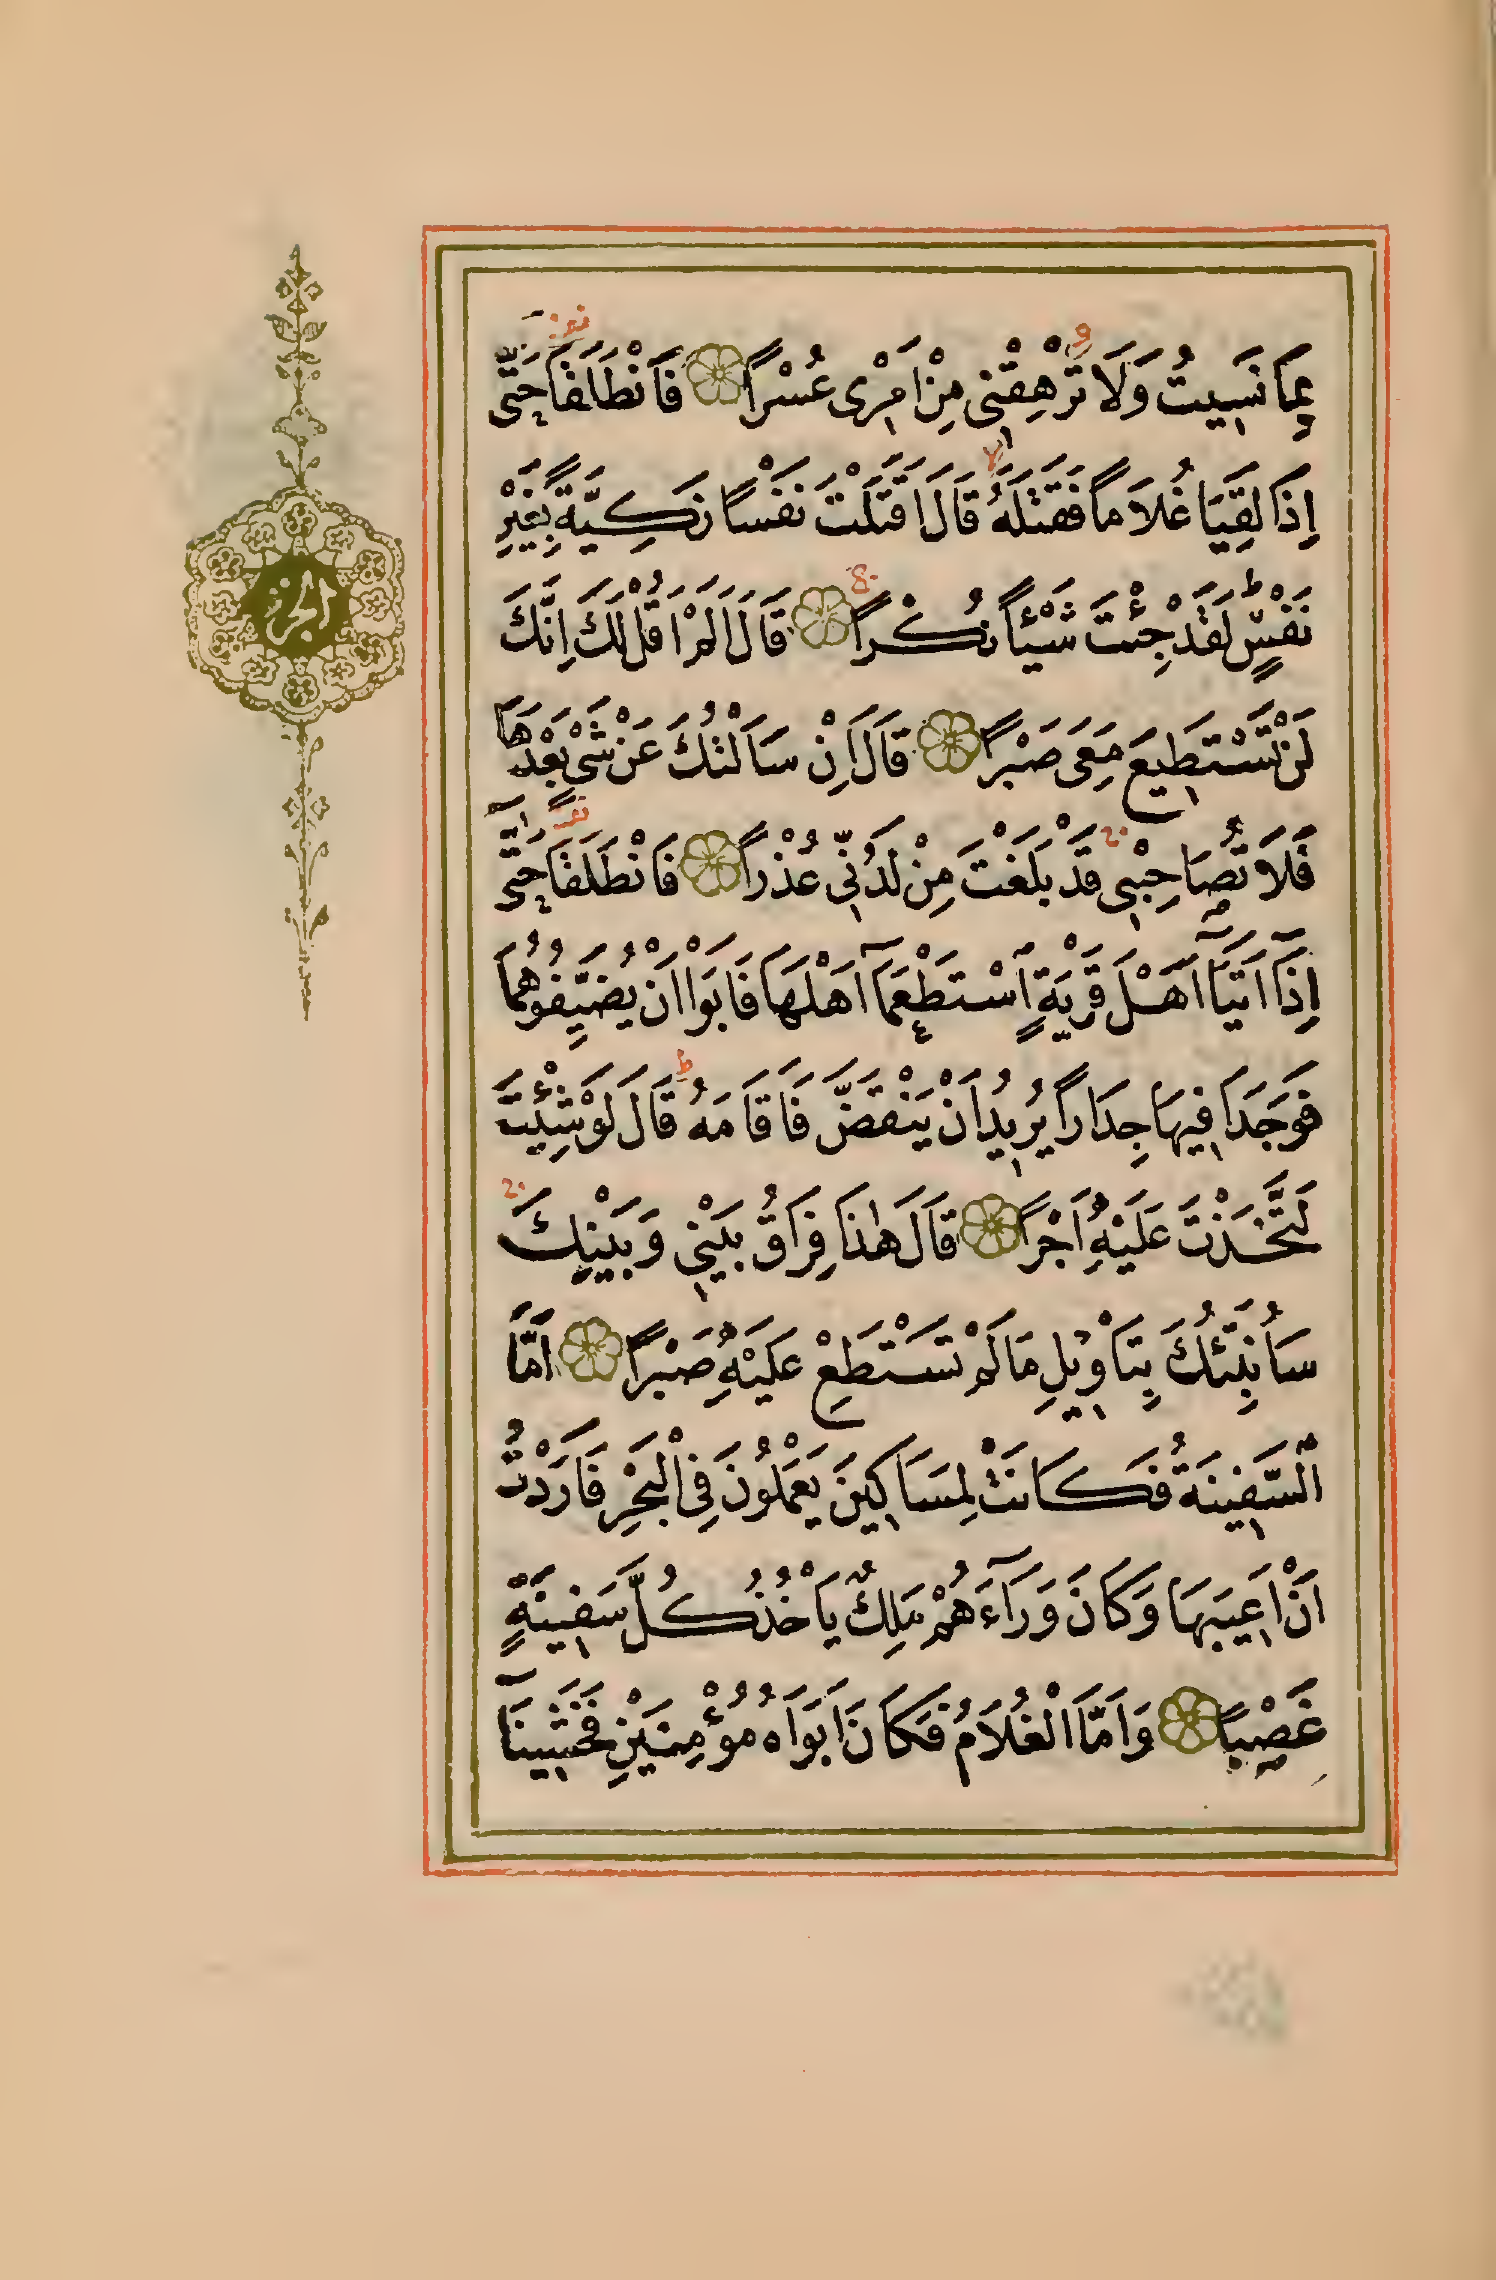 بِمَا نَسِيتُ وَلَا تُرْهِقْنِي مِنْ اَمْرِى عُسْرًا فَانْطَلَقَا حَتّٰى
اِذَا لَقِيَا غُلَامًا فَقَتَلَهُ قَالَ اَقَتَلْتَ نَفْسًا زَكِيَّةً بِغَيْرِ
نَفْسٍ لَقَدْ جِئْتَ شَيْئًا نُكْرًا قَالَ اَلَمْ اَقُلْ لَكَ اِنَّكَ
لَنْ تَسْتَطِيعَ مَعِىَ صَبْرًا قَالَ اِنْ سَاَلْتُكَ عَنْ شَىْءٍ بَعْدَهَا
فَلَا تُصَاحِبْنِى قَدْ بَلَغْتَ مِنْ لَدُنِّى عُذْرًا فَانْطَلَقَا حَتّٰى
اِذَا اَتَيَآ اَهْلَ قَرْيَةٍ اسْتَطْعَمَآ اَهْلَهَا فَاَبَوْا اَنْ يُضَيِّفُوهُمَا
فَوَجَدَا فِيهَا جِدَارًا يُرِيدُ اَنْ يَنْقَضَّ فَاَقَامَهُ قَالَ لَوْ شِئْتَ
لَتَّخَذْتَ عَلَيْهِ اَجْرًا قَالَ هٰذَا فِرَاقُ بَيْنِي وَبَيْنِكَ
سَاُنَبِّئُكَ بِتَاْوِيلِ مَا لَمْ تَسْتَطِعْ عَلَيْهِ صَبْرًا اَمَّا
السَّفِينَةُ فَكَانَتْ لِمَسَاكِينَ يَعْمَلُونَ فِى الْبَحْرِ فَاَرَدْتُ
اَنْ اَعِيبَهَا وَكَانَ وَرَآءَهُمْ مَلِكٌ يَاْخُذُ كُلَّ سَفِينَةٍ
غَصْبًا وَاَمَّا الْغُلَامُ فَكَانَ اَبَوَاهُ مُؤْمِنَيْنِ فَخَشِينَآ
الجزء